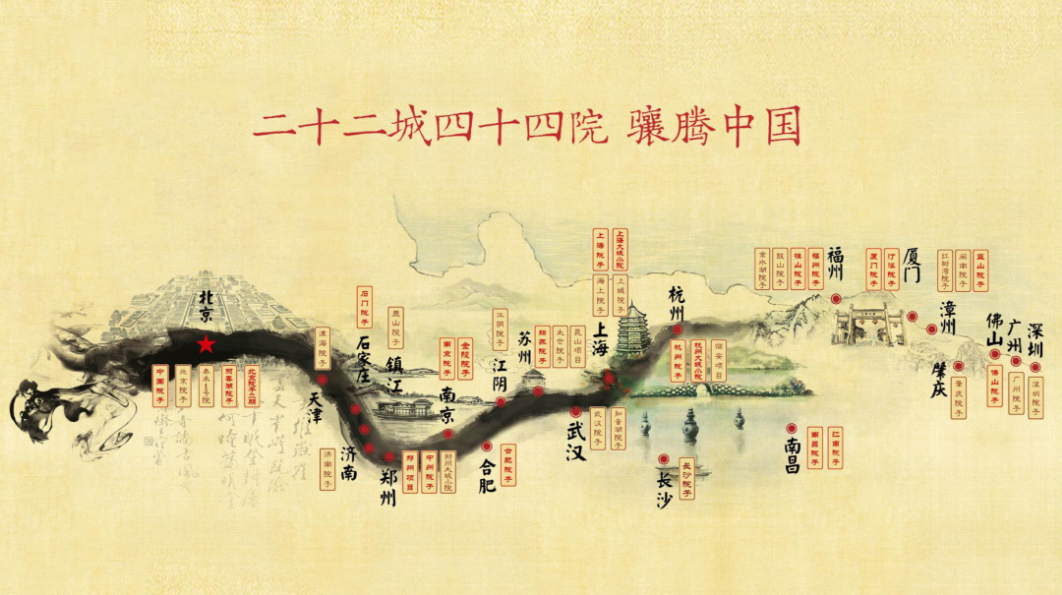 二十二城四十四院 骧腾中国
北京
中国院子
北京院子
泰禾1号院
西府海棠院子
天津
津海院子
石家庄
石门院子
济南
济南院子
郑州
郑州项目
中州院子
郑州大城小院
镇江
麓山院子
南京
南京院子
金陵院子
江阴
江阴院子
合肥
合肥院子
苏州
姑苏院子
太仓院子
昆山项目
武汉
武汉院子
知音湖院子
上海
上海院子
上海大城小院
海上院子
上城院子
杭州
杭州院子
杭州大城小院
临安项目
长沙
长沙院子
南昌
南昌院子
江南院子
福州
金水湖院子
鼓山院子
桂山院子
福州院子
厦门
厦门院子
汀溪院子
漳州
红树湾院子
闽南院子
蓝山院子
肇庆
肇庆院子
佛山
佛山院子
广州
广州院子
深圳
深圳院子